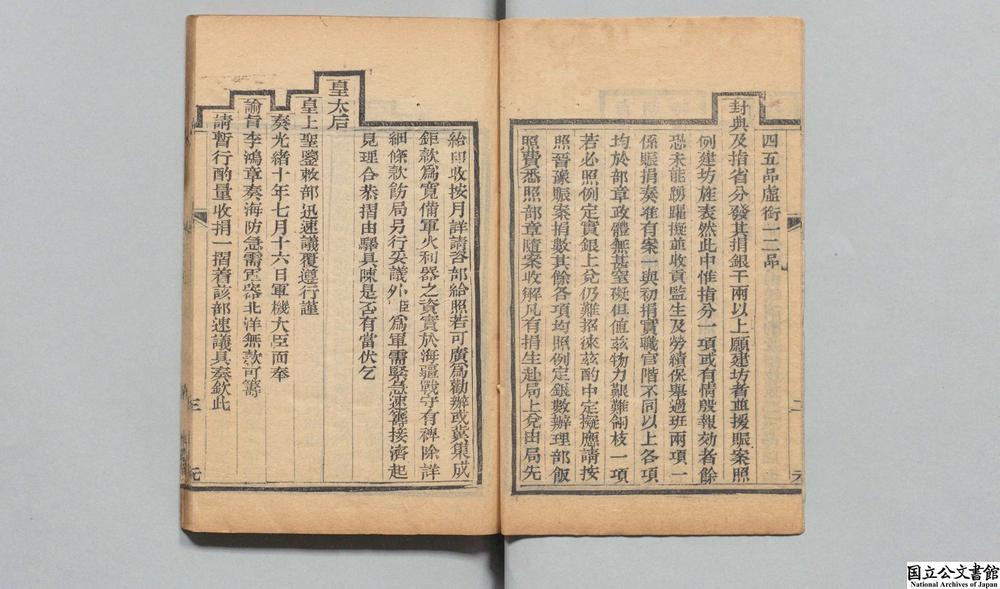 四五品虛銜一二品
封典及指省分發其捐銀千兩以上願建坊者並援賑案照
例建坊旌表然此中惟指分一項或有情殷報効者餘
恐未能踴躍擬並收貢監生及勞績保舉過班兩項一
係賑捐奏准有案一與初捐實職官階不同以上各項
均於部章政體無甚窒礙但值茲物力艱難翎枝一項
若必照例定實銀上兌仍難招徠茲酌中定擬應請按
照晉豫賑案捐數其餘各項均照例定銀數辦理部飯
照費悉照部章隨案收解凡有捐生赴局上兌由局先
二
給印收按月詳請咨部給照若可廣爲勸辦或冀集成
鉅款爲寬備軍火利器之資實於海疆戰守有裨除詳
細條款飭局另行妥議外臣爲軍需緊急速籌接濟起
見理合恭摺由驛具陳是否有當伏乞
皇太后
皇上聖鑒敕部迅速議覆遵行謹
奏光緒十年七月十六日軍機大臣面奉
諭旨李鴻章奏海防急需軍器北洋無款可籌
請暫行酌量收捐一摺着該部速議具奏欽此
三
元
国立公文書館
National Archives of Japan